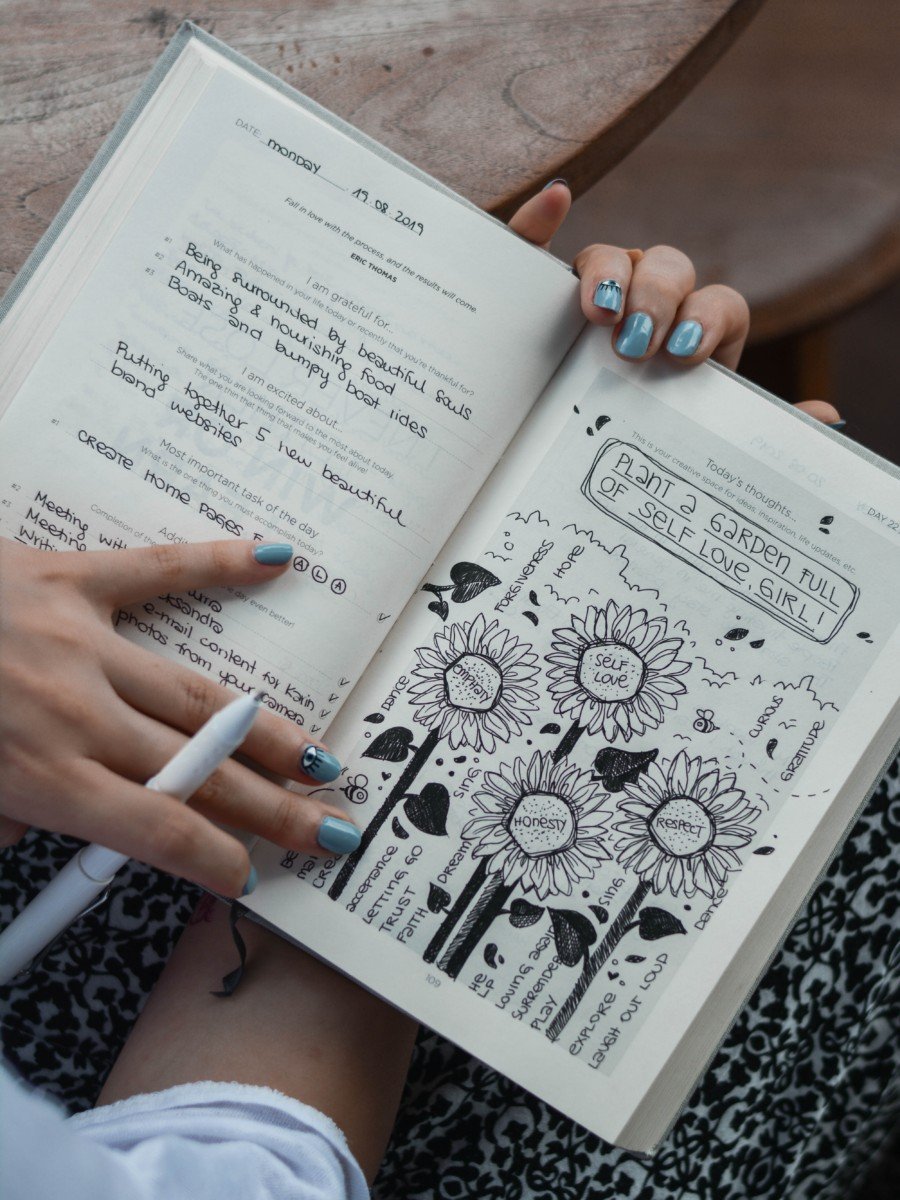 DATE: monday 19.08.2019
Fall in love with the process, and the results will come.
ERIC THOMAS
I am grateful for...
What has happened in your life today or recently that you're thankful for?
#1 Being surrounded by beautiful souls
#2 Amazing & nourishing food
#3 Boats and bumpy boat rides
I am excited about...
Share what you are looking forward to the most about today.
The one thin that thing that makes you feel alive!
Putting together 5 new beautiful
brand websites
Most important task of the day
What is the one thing you must accomplish today?
#1 CREATE HOME PAGES
ALA
Completion of the
day even better!
#2 Meeting with
#3 Meeting
e-mail content for Karin
photos from your camera
Today's thoughts...
This is your creative space for ideas, inspiration, life updates, etc
DAY 22
PLANT A GARDEN FULL
OF SELF LOVE, GIRL!
FORGIVENESS
HOPE
SELF
LOVE
DANCE
SING
CURIOUS
GRATITUDE
HONESTY
RESPECT
acceptance
LETTING GO
TRUST
FAITH
DREAM
SING
Dance
HELP
LOVING again
SURRENDER
PLAY
EXPLORE
LAUGH OUT LOUD
109